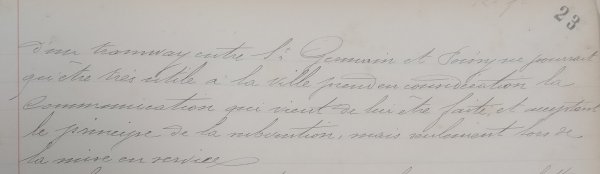 23
d'un tramway entre St Germain et Poissy ne pourrait
qu'être très utile à la ville prend en considération la
communication qui vient de lui être faite, et acceptant
le principe de la subvention, mais seulement lors de
la mise en service